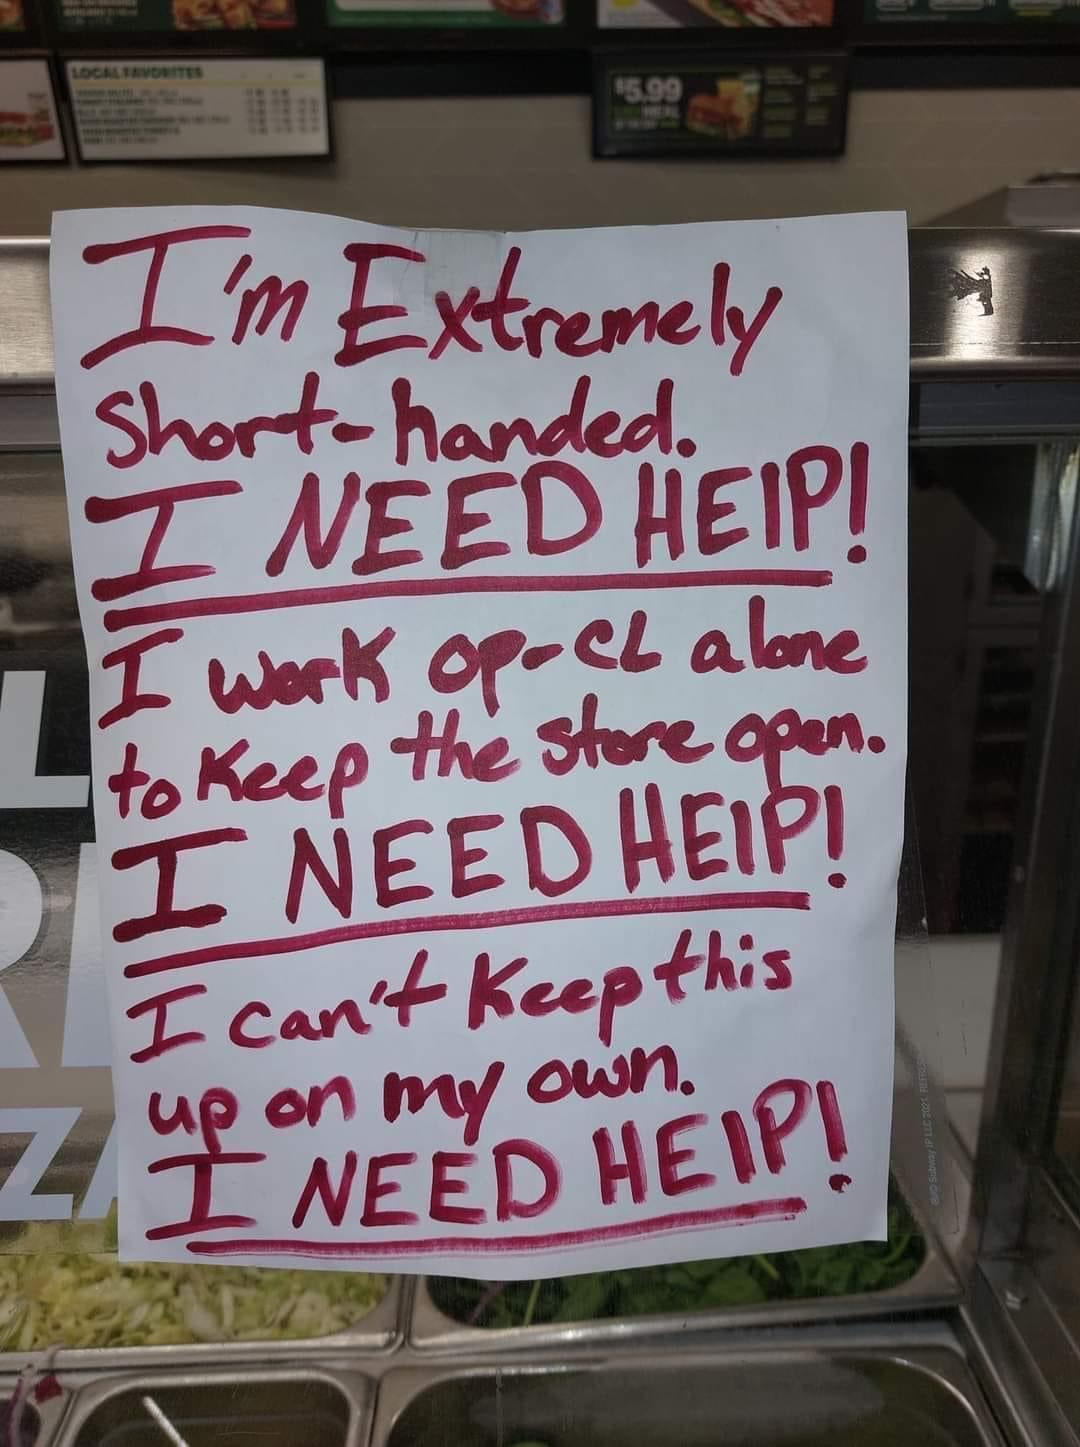 LOCAL FAVORITES
$5.99
MEAL
I'm Extremely
Short-handed.
I NEED HElP!
I work op-cL alone
to Keep the store open.
I NEED HElP!
I can't Keep this
up on my own.
I NEED HElP!
Subway IP LLC 2021.